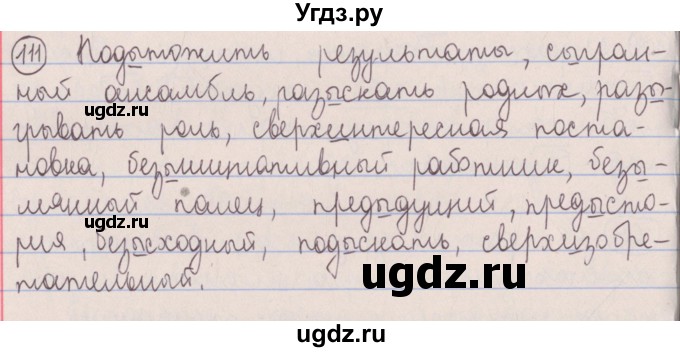 Угдз.ру
111 Подытожить результаты, сыгран-
ный ансамбль, разыскать родных, разы-
ugdz.ru
грывать роль, сверхинтересная поста-
новка, безынициативный работник, безы-
мянный палец, предыдущий, предысто-
рия, безысходный, подыскать, сверхизобре-
тательный.
ugdz.ru
ugdz.ru
ugdz.ru